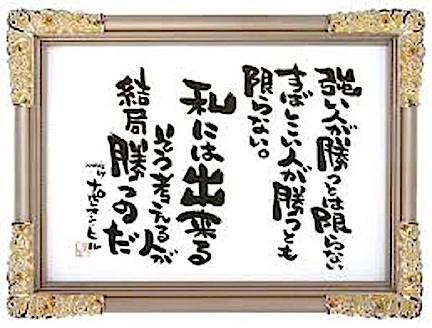 強い人が勝つとは限らない
すばしこい人が勝つとも
限らない。
私には出来る
そう考える人が
結局勝つのだ
words by
ナポレオン・ヒル